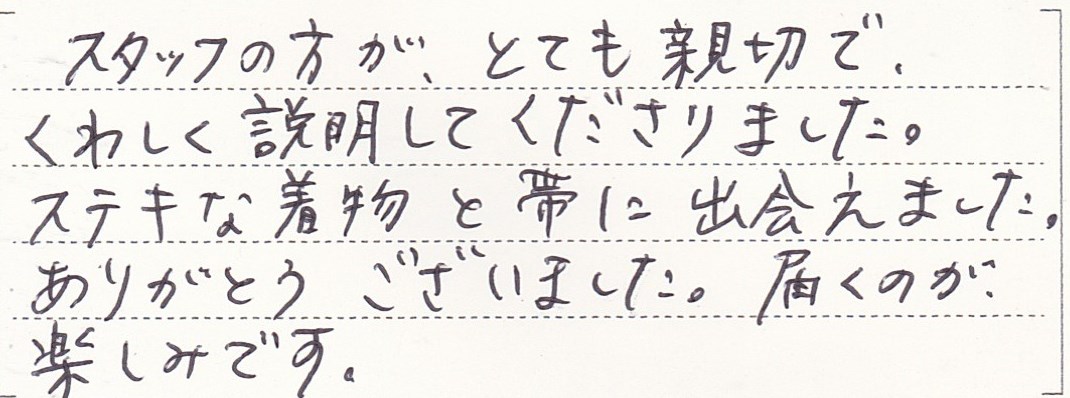 スタッフの方が、とても親切で、
くわしく説明してくださりました。
ステキな着物と帯に出会えました。
ありがとうございました。届くのが
楽しみです。